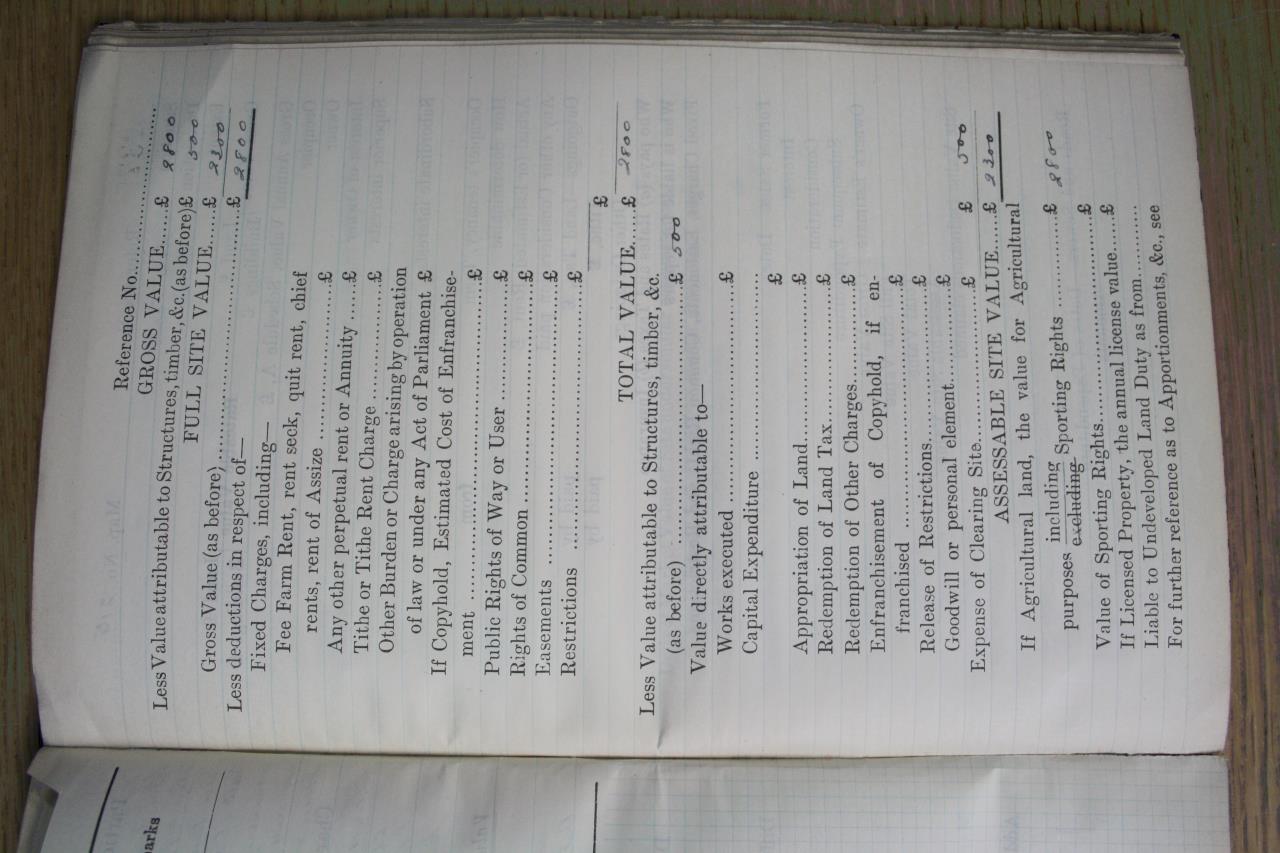 Reference No.
GROSS VALUE......£ 2800
Less Value attributable to Structures, timber, &c. (as before) £ 500
FULL SITE VALUE......£ 2300
Gross Value (as before) ..............................£ 2800
Less deductions in respect of—
Fixed Charges, including—
Fee Farm Rent, rent seck, quit rent, chief
rents, rent of Assize ....................£
Any other perpetual rent or Annuity ......£
Tithe or Tithe Rent Charge ..............£
Other Burden or Charge arising by operation
of law or under any Act of Parliament £
If Copyhold, Estimated Cost of Enfranchise-
ment ....................................£
Public Rights of Way or User ............£
Rights of Common ........................£
Easements ...............................£
Restrictions ............................£
£
TOTAL VALUE......£ 2800
Less Value attributable to Structures, timber, &c.
(as before) .............................£ 500
Value directly attributable to—
Works executed ..........................£
Capital Expenditure .....................
£
Appropriation of Land....................£
Redemption of Land Tax...................£
Redemption of Other Charges..............£
Enfranchisement of Copyhold, if en-
franchised ..............................£
Release of Restrictions..................£
Goodwill or personal element.............£
Expense of Clearing Site.................£ £ 500
ASSESSABLE SITE VALUE......£ 2300
If Agricultural land, the value for Agricultural
purposes including excluding Sporting Rights ............£ 2800
Value of Sporting Rights.........................£
If Licensed Property, the annual license value......£
Liable to Undeveloped Land Duty as from............
For further reference as to Apportionments, &c., see
arks